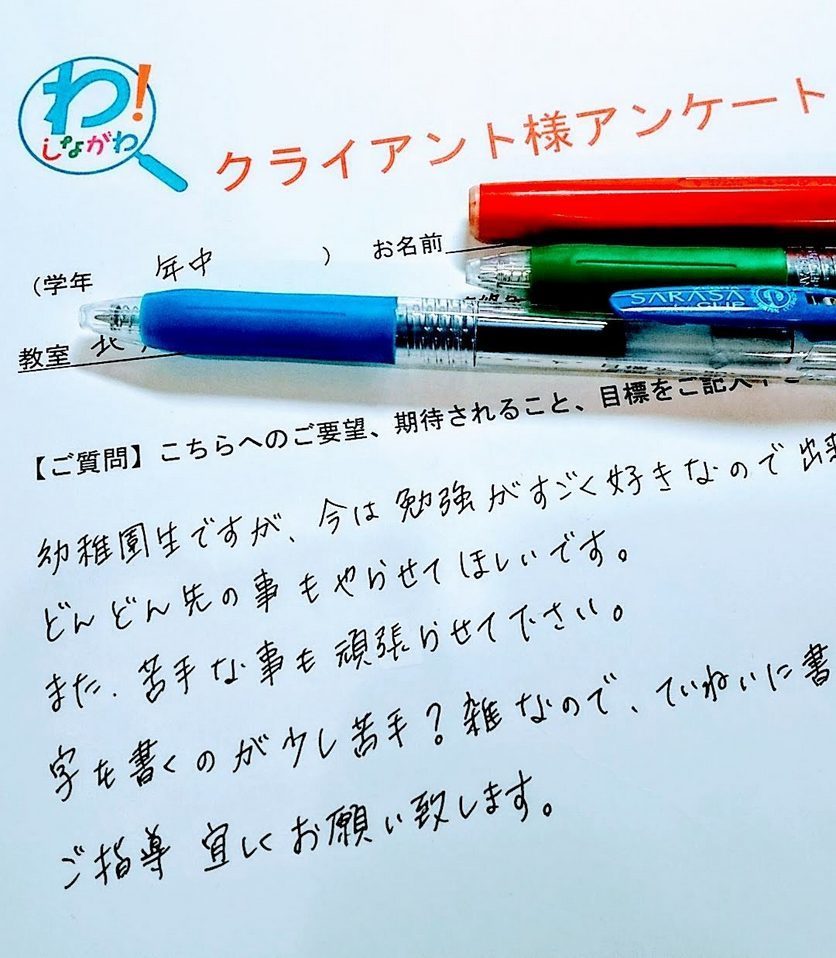 わ!
しながわ
クライアント様アンケート
(学年 年中 ) お名前
SARASA
教室 北
【ご質問】こちらへのご要望、期待されること、目標をご記入下さ
幼稚園生ですが、今は勉強がすごく好きなので出来
どんどん先の事もやらせてほしいです。
また、苦手な事も頑張らせて下さい。
字を書くのが少し苦手?雑なので、ていねいに書
ご指導宜しくお願い致します。